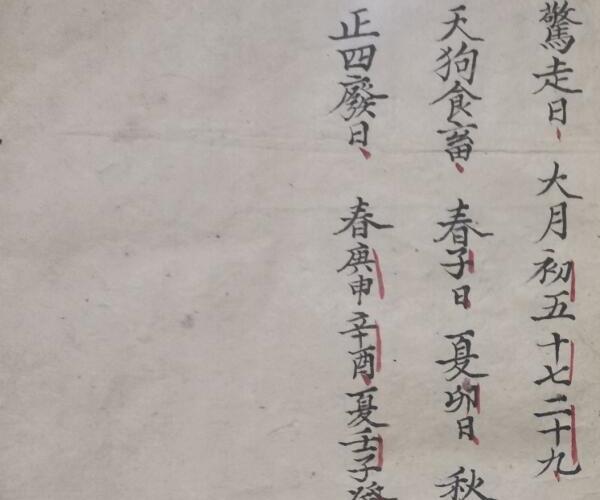 驚走日 大月初五十七二十九
天狗食畜 春子日 夏卯日 秋
正四廢日 春庚申辛酉夏壬子癸